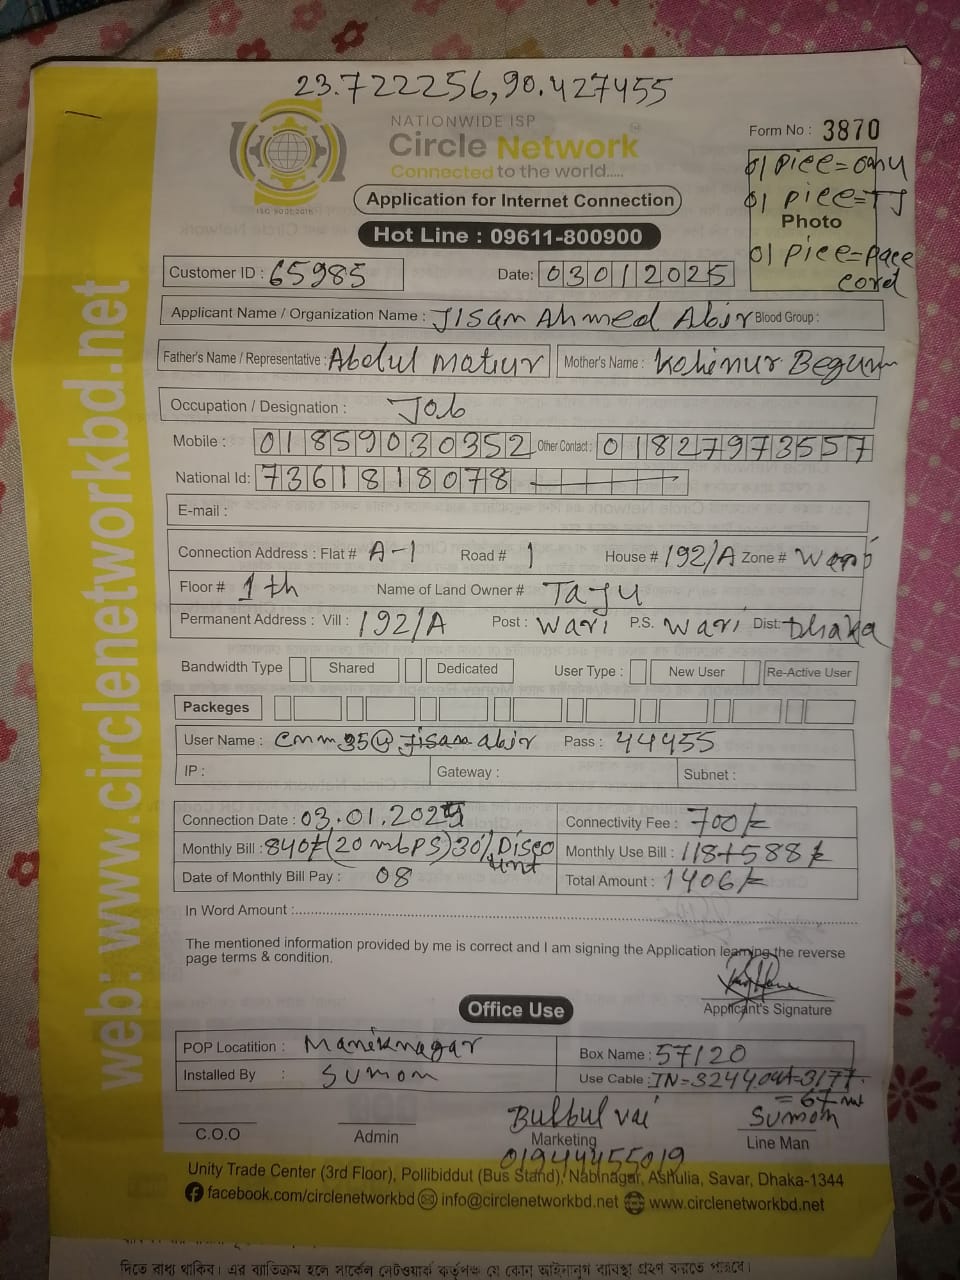 23.722256,90.427455
NATIONWIDE ISP
Circle Network
Connected to the world.....
ISO 9001:2015
Form No : 3870
01 piece=onu
01 piece=TJ
Photo
01 piece=pace cord
Application for Internet Connection
Hot Line : 09611-800900
Customer ID : 65985 Date: 03012025
Applicant Name / Organization Name : Jisam Ahmed Abir Blood Group :
Father's Name / Representative : Abdul Matiur Mother's Name : Kohinur Begum
Occupation / Designation : Job
Mobile : 01859030352 Other Contact : 01827973557
National Id: 7361818078
E-mail :
Connection Address : Flat # A-1 Road # 1 House # 192/A Zone # Wari
Floor # 1th Name of Land Owner # Taju
Permanent Address : Vill : 192/A Post : Wari P.S. Wari Dist: Dhaka
Bandwidth Type Shared Dedicated User Type : New User Re-Active User
Packeges
User Name : Cmm35@Jisam.abir Pass : 44455
IP : Gateway : Subnet :
Connection Date : 03.01.2025 Connectivity Fee : 700/=
Monthly Bill : 840/=(20 mbps) 30% Discount Monthly Use Bill : 118+588/=
Date of Monthly Bill Pay : 08 Total Amount : 1406/=
In Word Amount :
The mentioned information provided by me is correct and I am signing the Application learning the reverse
page terms & condition.
Applicant's Signature
Office Use
POP Locatition : Maniknagar Box Name : 57120
Installed By : Sumon Use Cable : IN=3244 out=3177
= 67 m
C.O.O Admin Bulbul vai Marketing Sumon Line Man
01944455019
Unity Trade Center (3rd Floor), Pollibiddut (Bus Stand), Nabinagar, Ashulia, Savar, Dhaka-1344
facebook.com/circlenetworkbd info@circlenetworkbd.net www.circlenetworkbd.net
web: www.circlenetworkbd.net
দিতে বাধ্য থাকিব। এর ব্যতিক্রম হলে সার্কেল নেটওয়ার্ক কর্তৃপক্ষ যে কোন আইনানুগ ব্যবস্থা গ্রহণ করতে পারবে।